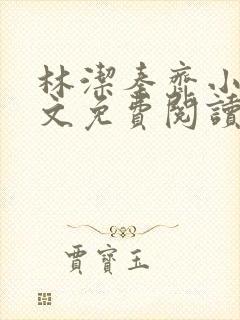 林潔秦齊小
文免費閱讀
賈寶玉